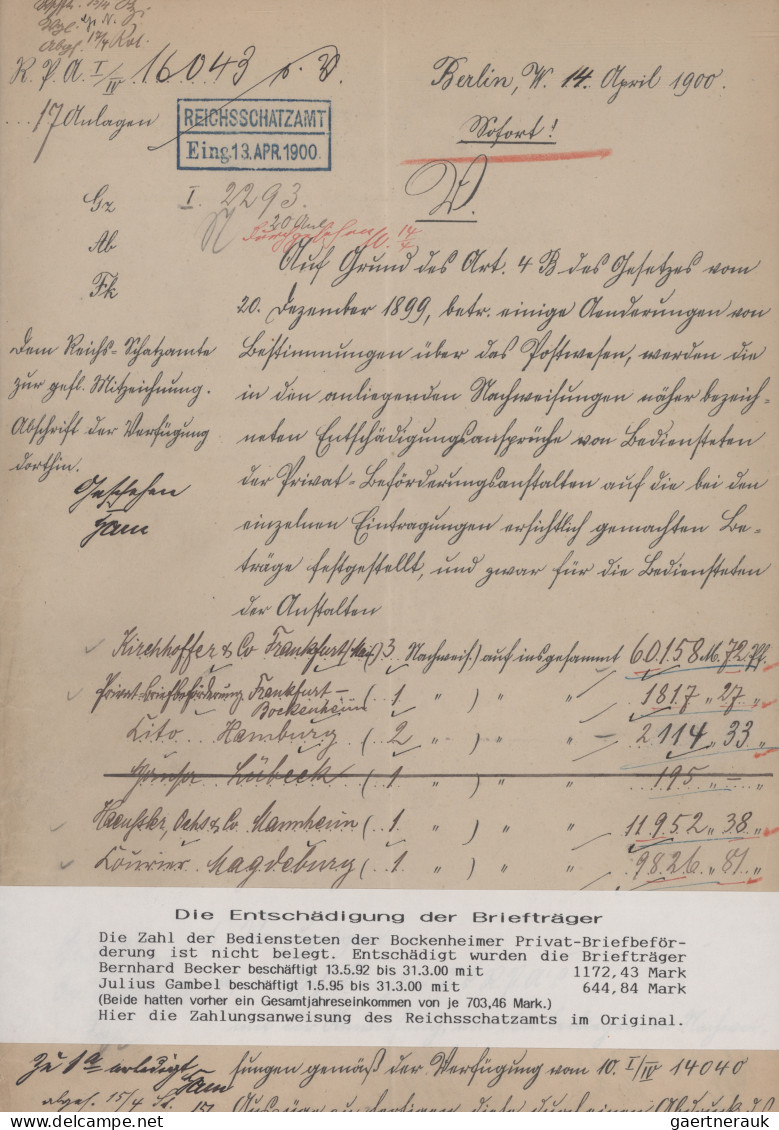 R. P. A. I/IV 16043 p. V.
Berlin, W. 14. April 1900.
17 Anlagen
REICHSSCHATZAMT
Eing. 13. APR. 1900.
Sofort!
I. 2293.
V.
20 Anl.
14/4
Gz
Ab
Fk
Auf Grund des Art. 4 B des Gesetzes vom
20. Dezember 1899, betr. einige Aenderungen von
Bestimmungen über das Postwesen, werden die
in den anliegenden Nachweisungen näher bezeich-
neten Entschädigungsansprüche von Bediensteten
der Privat-Beförderungsanstalten auf die bei den
einzelnen Eintragungen ersichtlich gemachten Be-
träge festgestellt, und zwar für die Bediensteten
der Anstalten
Dem Reichs-Schatzamte
zur gefl. Mitzeichnung.
Abschrift der Verfügung
dorthin.
Geschehen
Jam
Kirchhoffer & Co Frankfurt (3 Nachweis.) auf insgesamt 60158 M. 72 Pf.
Privat-Briefbeförderung Frankfurt-
Bockenheim (.. 1 " ) " " 1817 " 27 "
Lito.. Hamburg (.. 2 " ) " " 2114 " 33 "
Hansa.. Lübeck (.. 1 " ) " " 195 " — "
Haeussler, Ochs & Co. Mannheim (.. 1. " ) " " 11952 " 38 "
Courier Magdeburg (.. 1 " ) " " 9826 " 81 "
Die Entschädigung der Briefträger
Die Zahl der Bediensteten der Bockenheimer Privat-Briefbeför-
derung ist nicht belegt. Entschädigt wurden die Briefträger
Bernhard Becker beschäftigt 13.5.92 bis 31.3.00 mit 1172,43 Mark
Julius Gambel beschäftigt 1.5.95 bis 31.3.00 mit 644,84 Mark
(Beide hatten vorher ein Gesamtjahreseinkommen von je 703,46 Mark.)
Hier die Zahlungsanweisung des Reichsschatzamts im Original.
Zu 1a erledigt
Jam
sungen gemäß der Verfügung vom 10. I/IV 14040
abges. 15/4
gaertnerauk